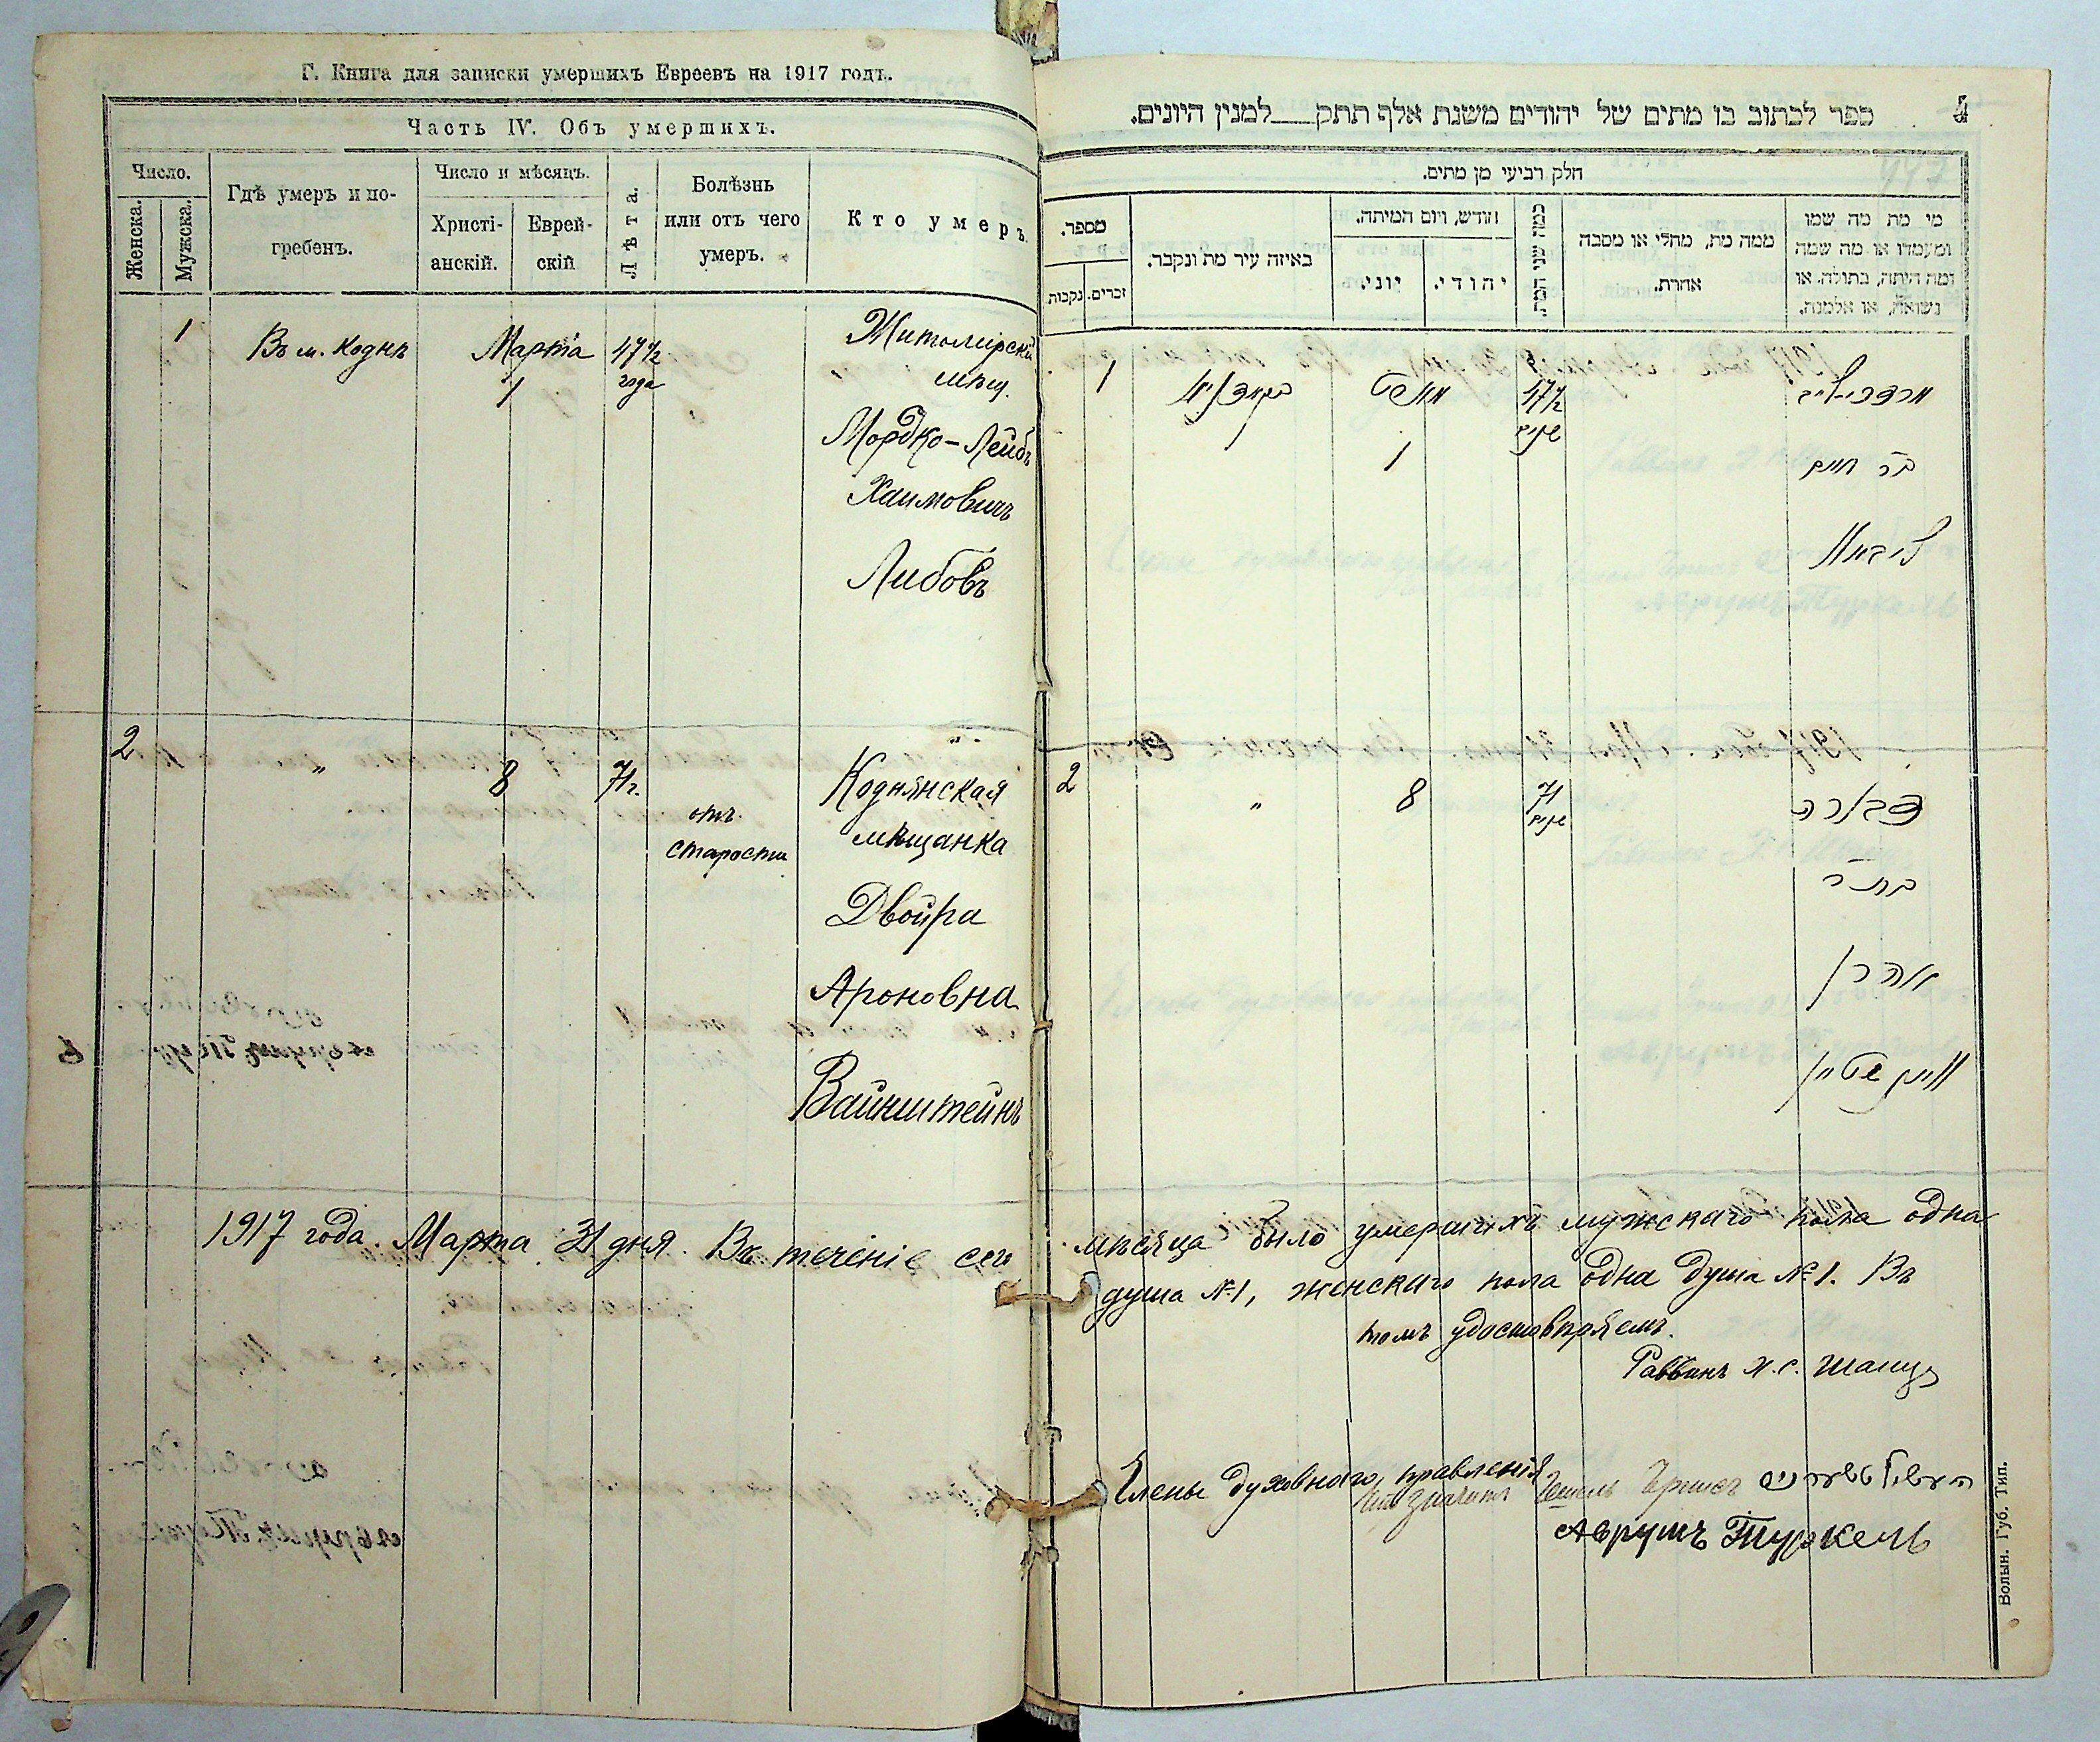 Г. Книга для записки умершихъ Евреевъ на 1917 годъ.
Часть IV. Объ умершихъ.
Число.
Женска.
Мужска.
Гдѣ умеръ и по-
гребенъ.
Число и мѣсяцъ.
Христі-
анскій.
Еврей-
скій
Лѣта.
Болѣзнь
или отъ чего
умеръ.
Кто умеръ
1
Въ м. Коднѣ
Марта
1
47 1/2
года
Житомирскій
мѣщ.
Мордко-Лейбъ
Хаимовичъ
Либовъ
2
"
8
71 г.
отъ
старости
Коднянская
мѣщанка
Двойра
Ароновна
Вайнштейнъ
1917 года. Марта 31 дня. Въ теченіе сего
ספר לכתוב בו מתים של יהודים משנת אלף תתק למנין היונים.
4
חלק רביעי מן מתים.
מספר.
נקבות
זכרים.
באיזה עיר מת ונקבר.
חודש, ויום המיתה.
יוני.
יהודי.
כמה שני המת.
ממה מת, מחלי או מסבה
אחרת.
מי מת מה שמו
ומעמדו או מה שמה
ומה היתה, בתולה. או
נשואה, או אלמנה.
1
בקאדניא
מארט
1
47 1/2
שנים
מרדכי-לייב
בר חיים
ליבאוו
2
"
8
71
שנים
דבורה
בת ר
אהרן
וויינשטיין
мѣсяца было умершихъ мужскаго пола одна
душа №1, женскаго пола одна душа №1. Въ
томъ удостовѣряемъ.
Раввинъ
Члены духовнаго правленія
Аврумъ Туркель
Волын. Губ. Тип.